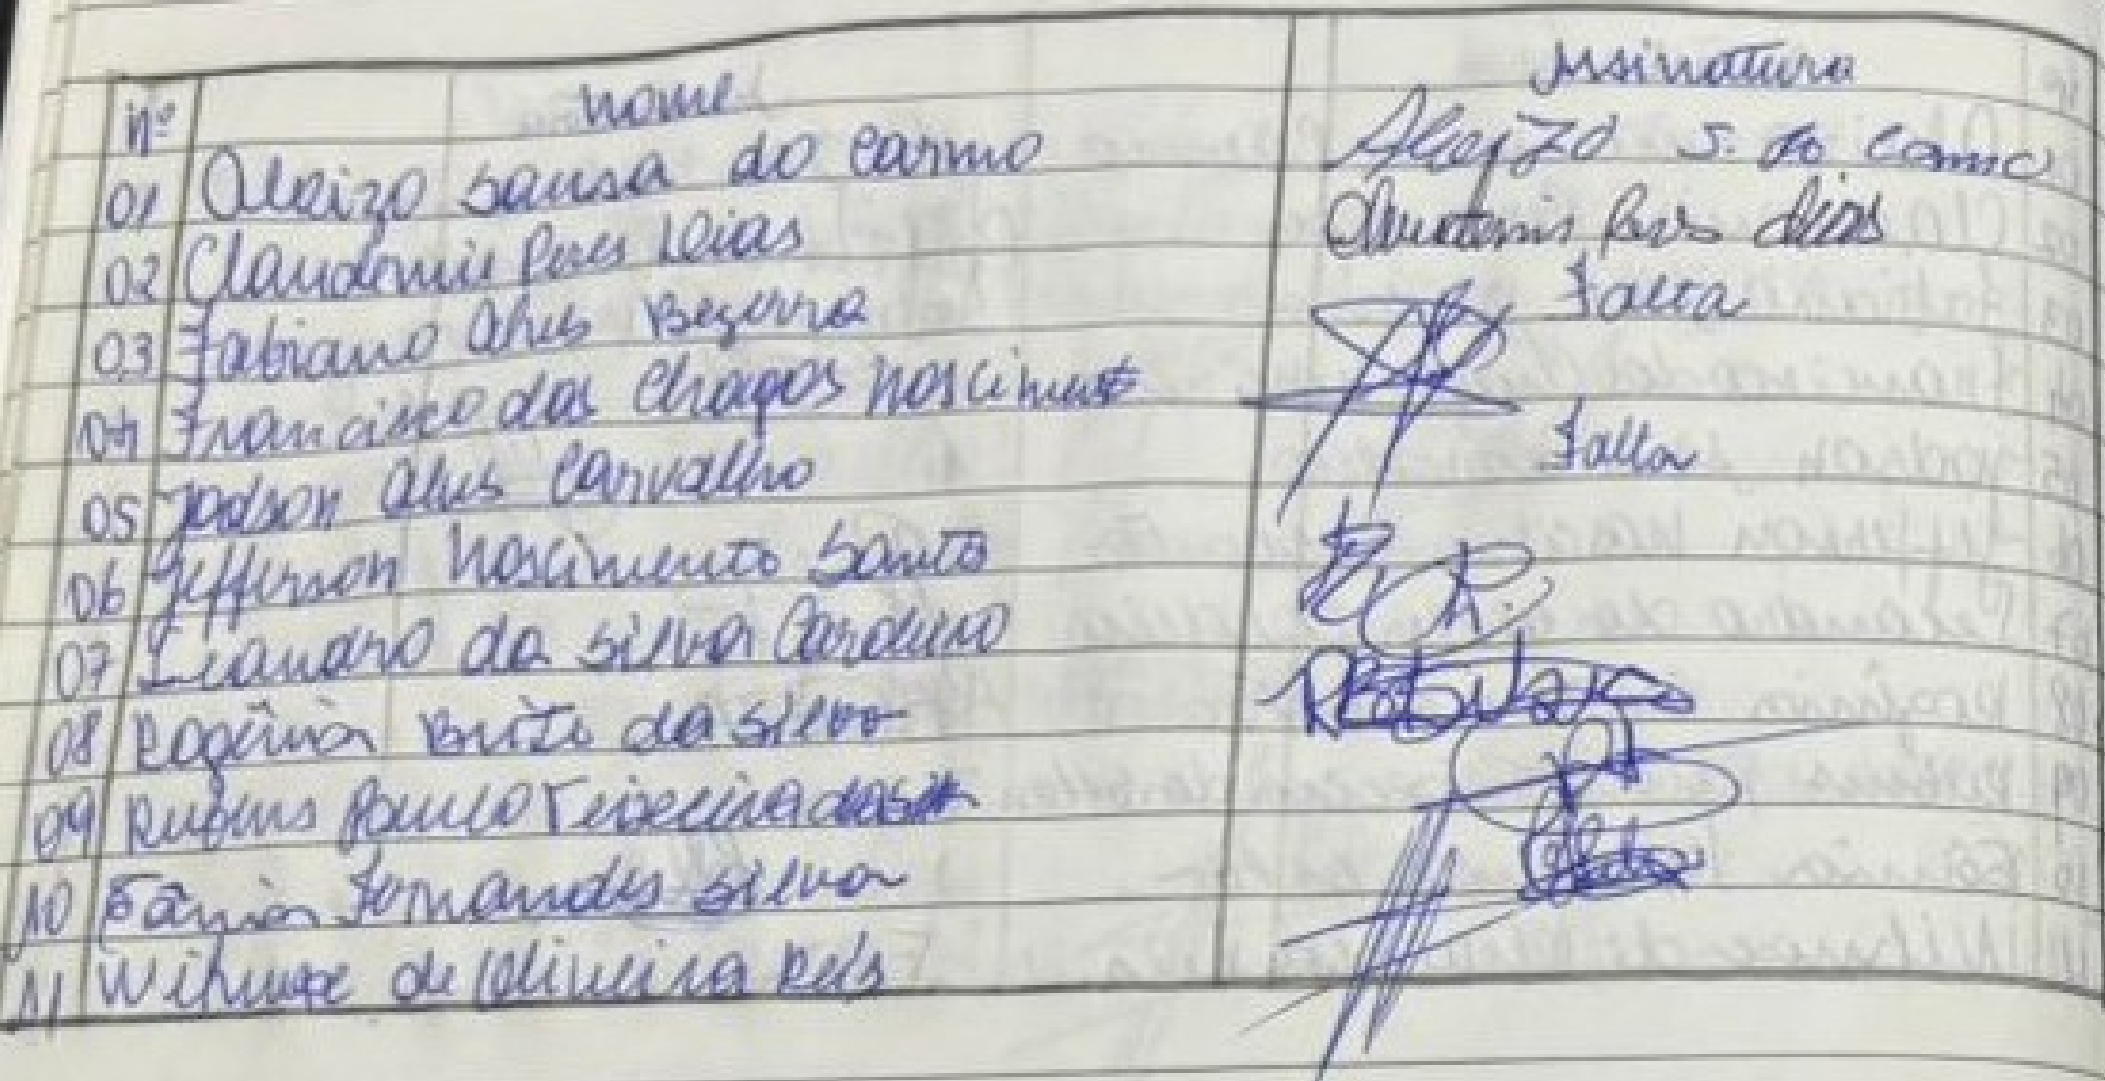 nº nome Assinatura
01 Aleizo Sousa do Carmo Aleizo S. do Carmo
02 Claudemir Peres Dias Claudemir Peres Dias
03 Fabiano Alves Bezerra Falta
04 Francisco das Chagas Nascimento
05 Jodson Alves Carvalho Falta
06 Jefferson Nascimento Santo
07 Leandro da Silva Cardoso
08 Rogênia Brito da Silva
09 Rubens Paulo Teixeira
10 Fernandes Silva
11 de Oliveira Reis